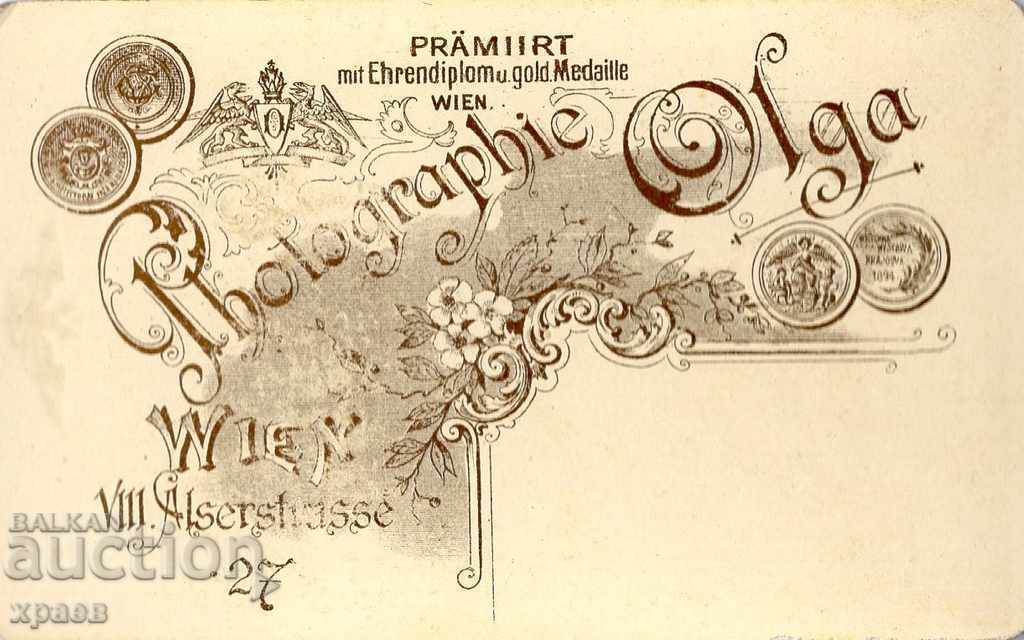 PRÄMIIRT
mit Ehrendiplom u. gold. Medaille
WIEN.
Photographie Olga
WYSTAWA
1894
WIEN
VIII. Alserstrasse
27
BALKAN
auction
храев